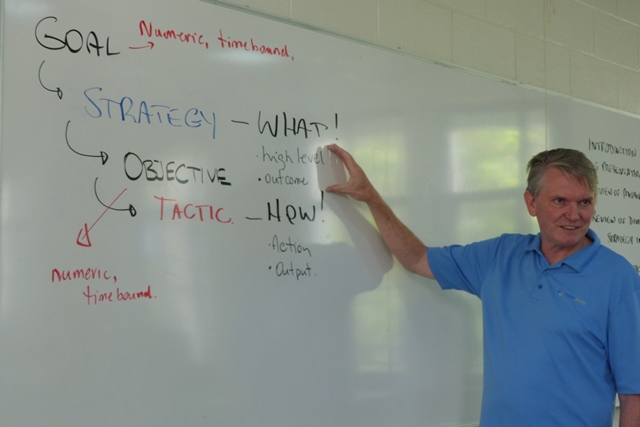 GOAL → Numeric, timebound,
STRATEGY – WHAT!
· high level
• outcome
OBJECTIVE
TACTIC. – HOW!
· Action
• Output.
numeric,
timebound.
INTRODUCTION
REVIEW OF
STRATEGY